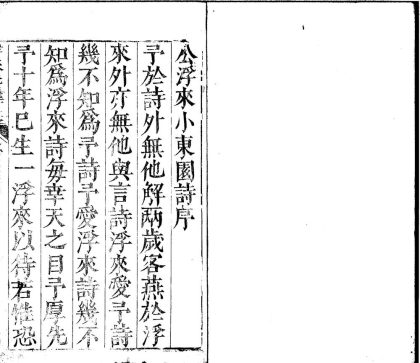 公浮來小東園詩序
予於詩外無他解兩歲客燕於浮
來外亦無他與言詩浮來愛予詩
幾不知爲予詩予愛浮來詩幾不
知爲浮來詩每幸天之目予厚先
予十年巳生一浮來以待若惟恐